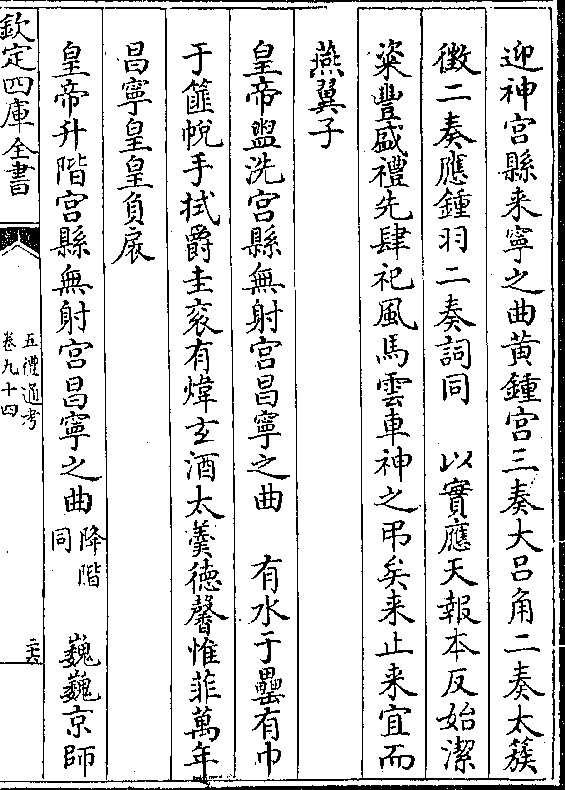 迎神宮縣来寧之曲黄鍾宫三奏大吕角二奏太簇
徴二奏應鍾羽二奏詞同　以實應天報本反始潔
粢豐盛禮先肆祀風馬雲車神之弔矣来止来宜而
燕翼子
皇帝盥洗宮縣無射宮昌寧之曲　有水于罍有巾
于篚帨手拭爵圭衮有煒玄酒太羹徳馨惟菲萬年
昌寧皇皇負扆
皇帝升階宮縣無射宮昌寧之曲降階同　巍巍京師
欽定四庫全書
五禮通考
卷九十四
二六